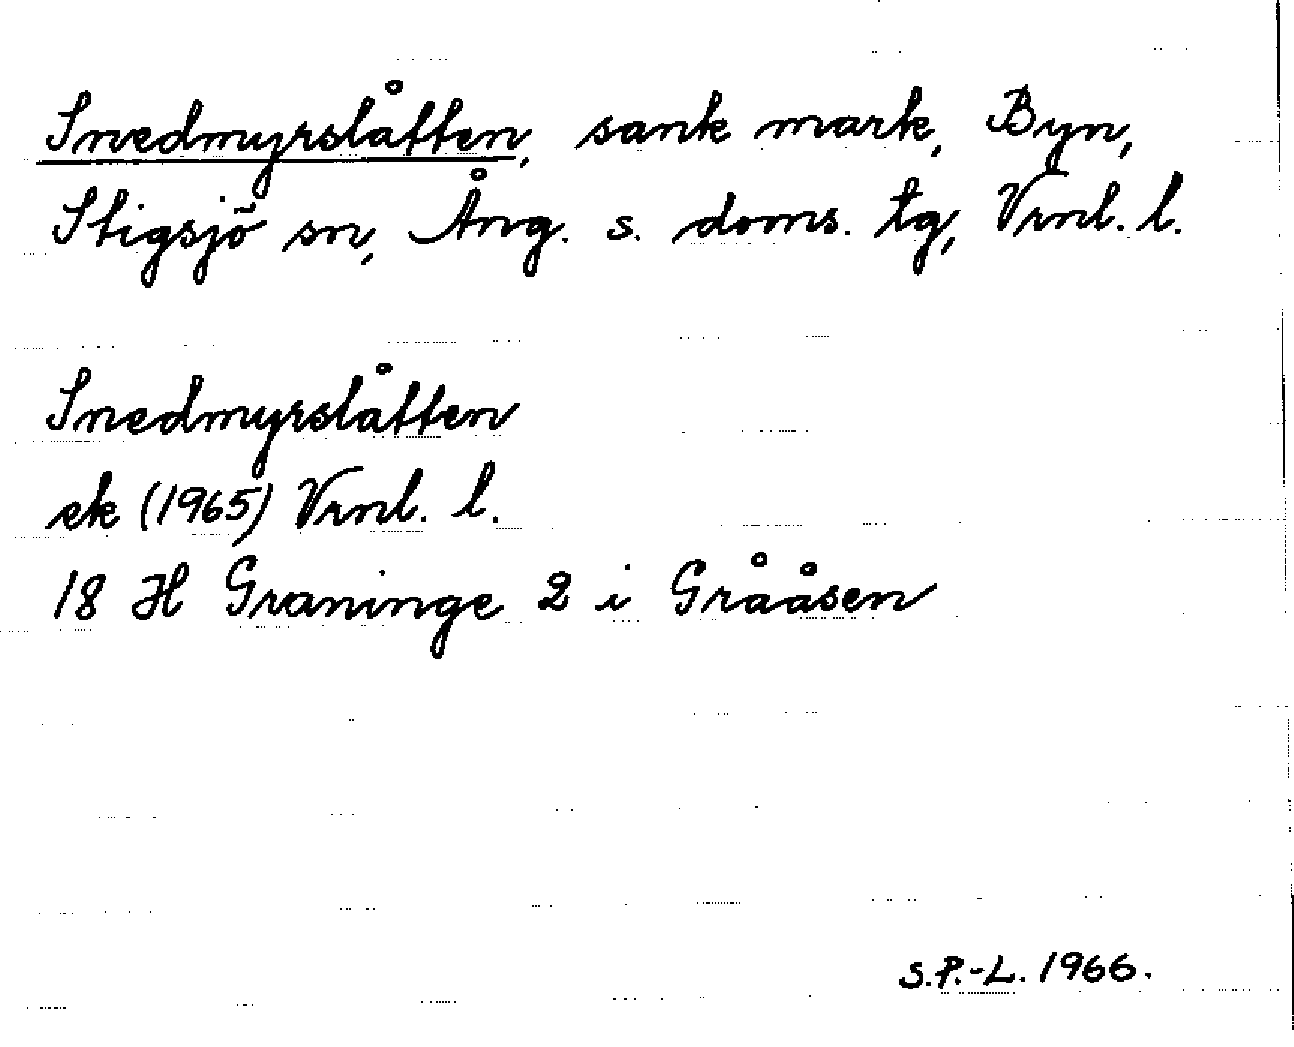 Snedmyrslåtten, sank mark, Byn,
Stigsjö sn, Ång. s. doms. tg, Vrnl. l.
Snedmyrslåtten
ek (1965) Vrnl. l.
18 H Graninge 2 i Grååsen
S.P.-L. 1966.